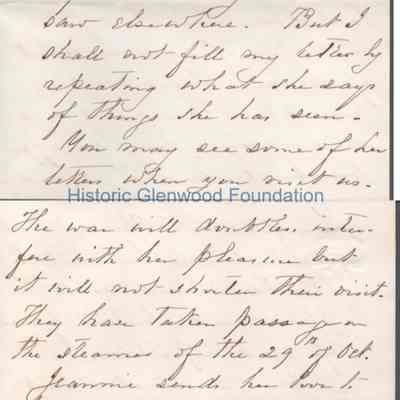 saw elsewhere. But I
shall not fill my letter by
repeating what she says
of things she has seen.
You may see some of her
letters when you visit us.
Historic Glenwood Foundation
The war will doubtless inter-
fere with her pleasure but
it will not shorten their visit.
They have taken passage on
the steamer of the 29th of Oct.
Jeannie sends her love to